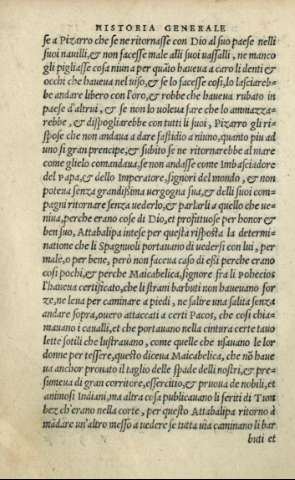 HISTORIA GENERALE
se a Pizarro che se ne ritornasse con Dio al suo paese nelli
suoi nauilli, & non facesse male alli suoi uassalli, ne manco
gli pigliasse cosa niuna per quāto haueua a caro li denti &
occhi che haueua nel uiso, & se lo facesse così, lo lasciareb-
be andare libero con l'oro, & robbe che haueua rubato in
paese d'altrui, & se non lo uoleua fare che lo ammazza-
rebbe, & dispogliarebbe con tutti li suoi, Pizarro gli ri-
spose che non andaua a dare fastidio a niuno, quanto piu ad
uno si gran prencipe, & subito se ne ritornarebbe al mare
come glielo comandaua, se non andasse come Imbasciadore
del Papa, & dello Imperatore, signori del mondo, & non
poteua senza grandissima uergogna sua, & delli suoi com-
pagni ritornare senza uederlo, & parlarli a quello che ue-
niua, perche erano cose di Dio, et profittuose per honor &
ben suo, Attabalipa intese per questa risposta la determi-
natione che li Spagnuoli portauano di uedersi con lui, per
male, o per bene, però non faceua caso di essi perche erano
cosi pochi, & perche Maicabelica, signore fra li Pohecios
l'haueua certificato, che li strani barbuti non haueuano for
ze, ne leua per caminare a piedi, ne salire una salita senza
andare sopra, ouero attaccati a certi Pacos, che cosi chia-
mauano i caualli, et che portauano nella cintura certe tauo
lette sottili che lustrauano, come quelle che usauano le lor
donne per tessere, questo diceua Maicabelica, che nō haue
ua anchor prouato il taglio delle spade delli nostri, & pre-
sumeua di gran corritore, essercitto, & pruoua de nobili, et
animosi Indiani, ma altra cosa publicauano li feriti di Tum
bez ch'erano nella corte, per questo Attabalipa ritornò à
mādare un'altro messo a uedere se tutta uia caminano li bar
buti et